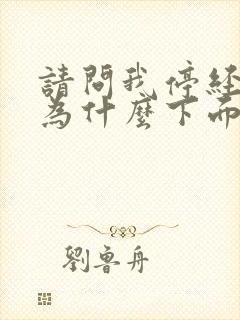 請問我停經
為什麼下而
劉魯舟